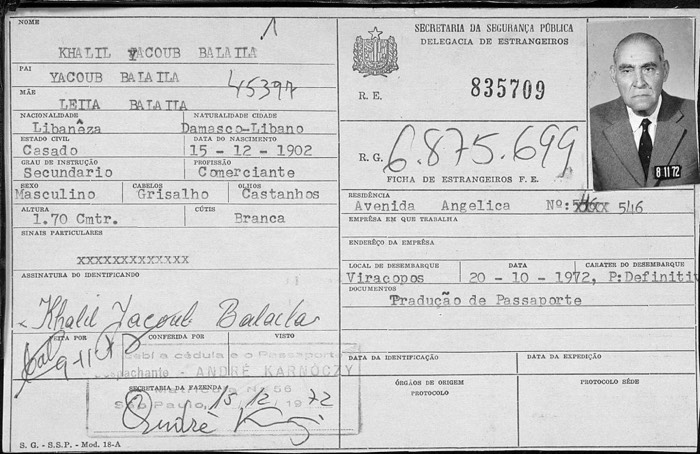 NOME
1
KHALIL YACOUB BALAILA
PAI
YACOUB BALAILA
45397
MÃE
LEILA BALAILA
NACIONALIDADE NATURALIDADE CIDADE
Libanêza Damasco-Libano
ESTADO CIVIL DATA DO NASCIMENTO
Casado 15 - 12 - 1902
GRAU DE INSTRUÇÃO PROFISSÃO
Secundario Comerciante
SEXO CABELOS OLHOS
Masculino Grisalho Castanhos
ALTURA CÚTIS
1.70 Cmtr. Branca
SINAIS PARTICULARES
XXXXXXXXXXXXX
ASSINATURA DO IDENTIFICANDO
Khalil Yacoub Balaila
FEITA POR CONFERIDA POR VISTO
cédula e o Passaporte
pachante - ANDRÉ KARNÓCZY
SECRETARIA DA FAZENDA
São Paulo, 15 12 1972
André
S. G. - S.S.P. - Mod. 18-A
SECRETARIA DA SEGURANÇA PÚBLICA
DELEGACIA DE ESTRANGEIROS
R. E. 835709
R. G. 6.875.699
FICHA DE ESTRANGEIROS F. E.
8 11 72
RESIDÊNCIA
Avenida Angelica Nº: 546
EMPRÊSA EM QUE TRABALHA
ENDERÊÇO DA EMPRÊSA
LOCAL DE DESEMBARQUE DATA CARATER DO DESEMBARQUE
Viracopos 20 - 10 - 1972, P:Definiti
DOCUMENTOS
Tradução de Passaporte
DATA DA IDENTIFICAÇÃO DATA DA EXPEDIÇÃO
ÓRGÃOS DE ORIGEM PROTOCOLO SÉDE
PROTOCOLO